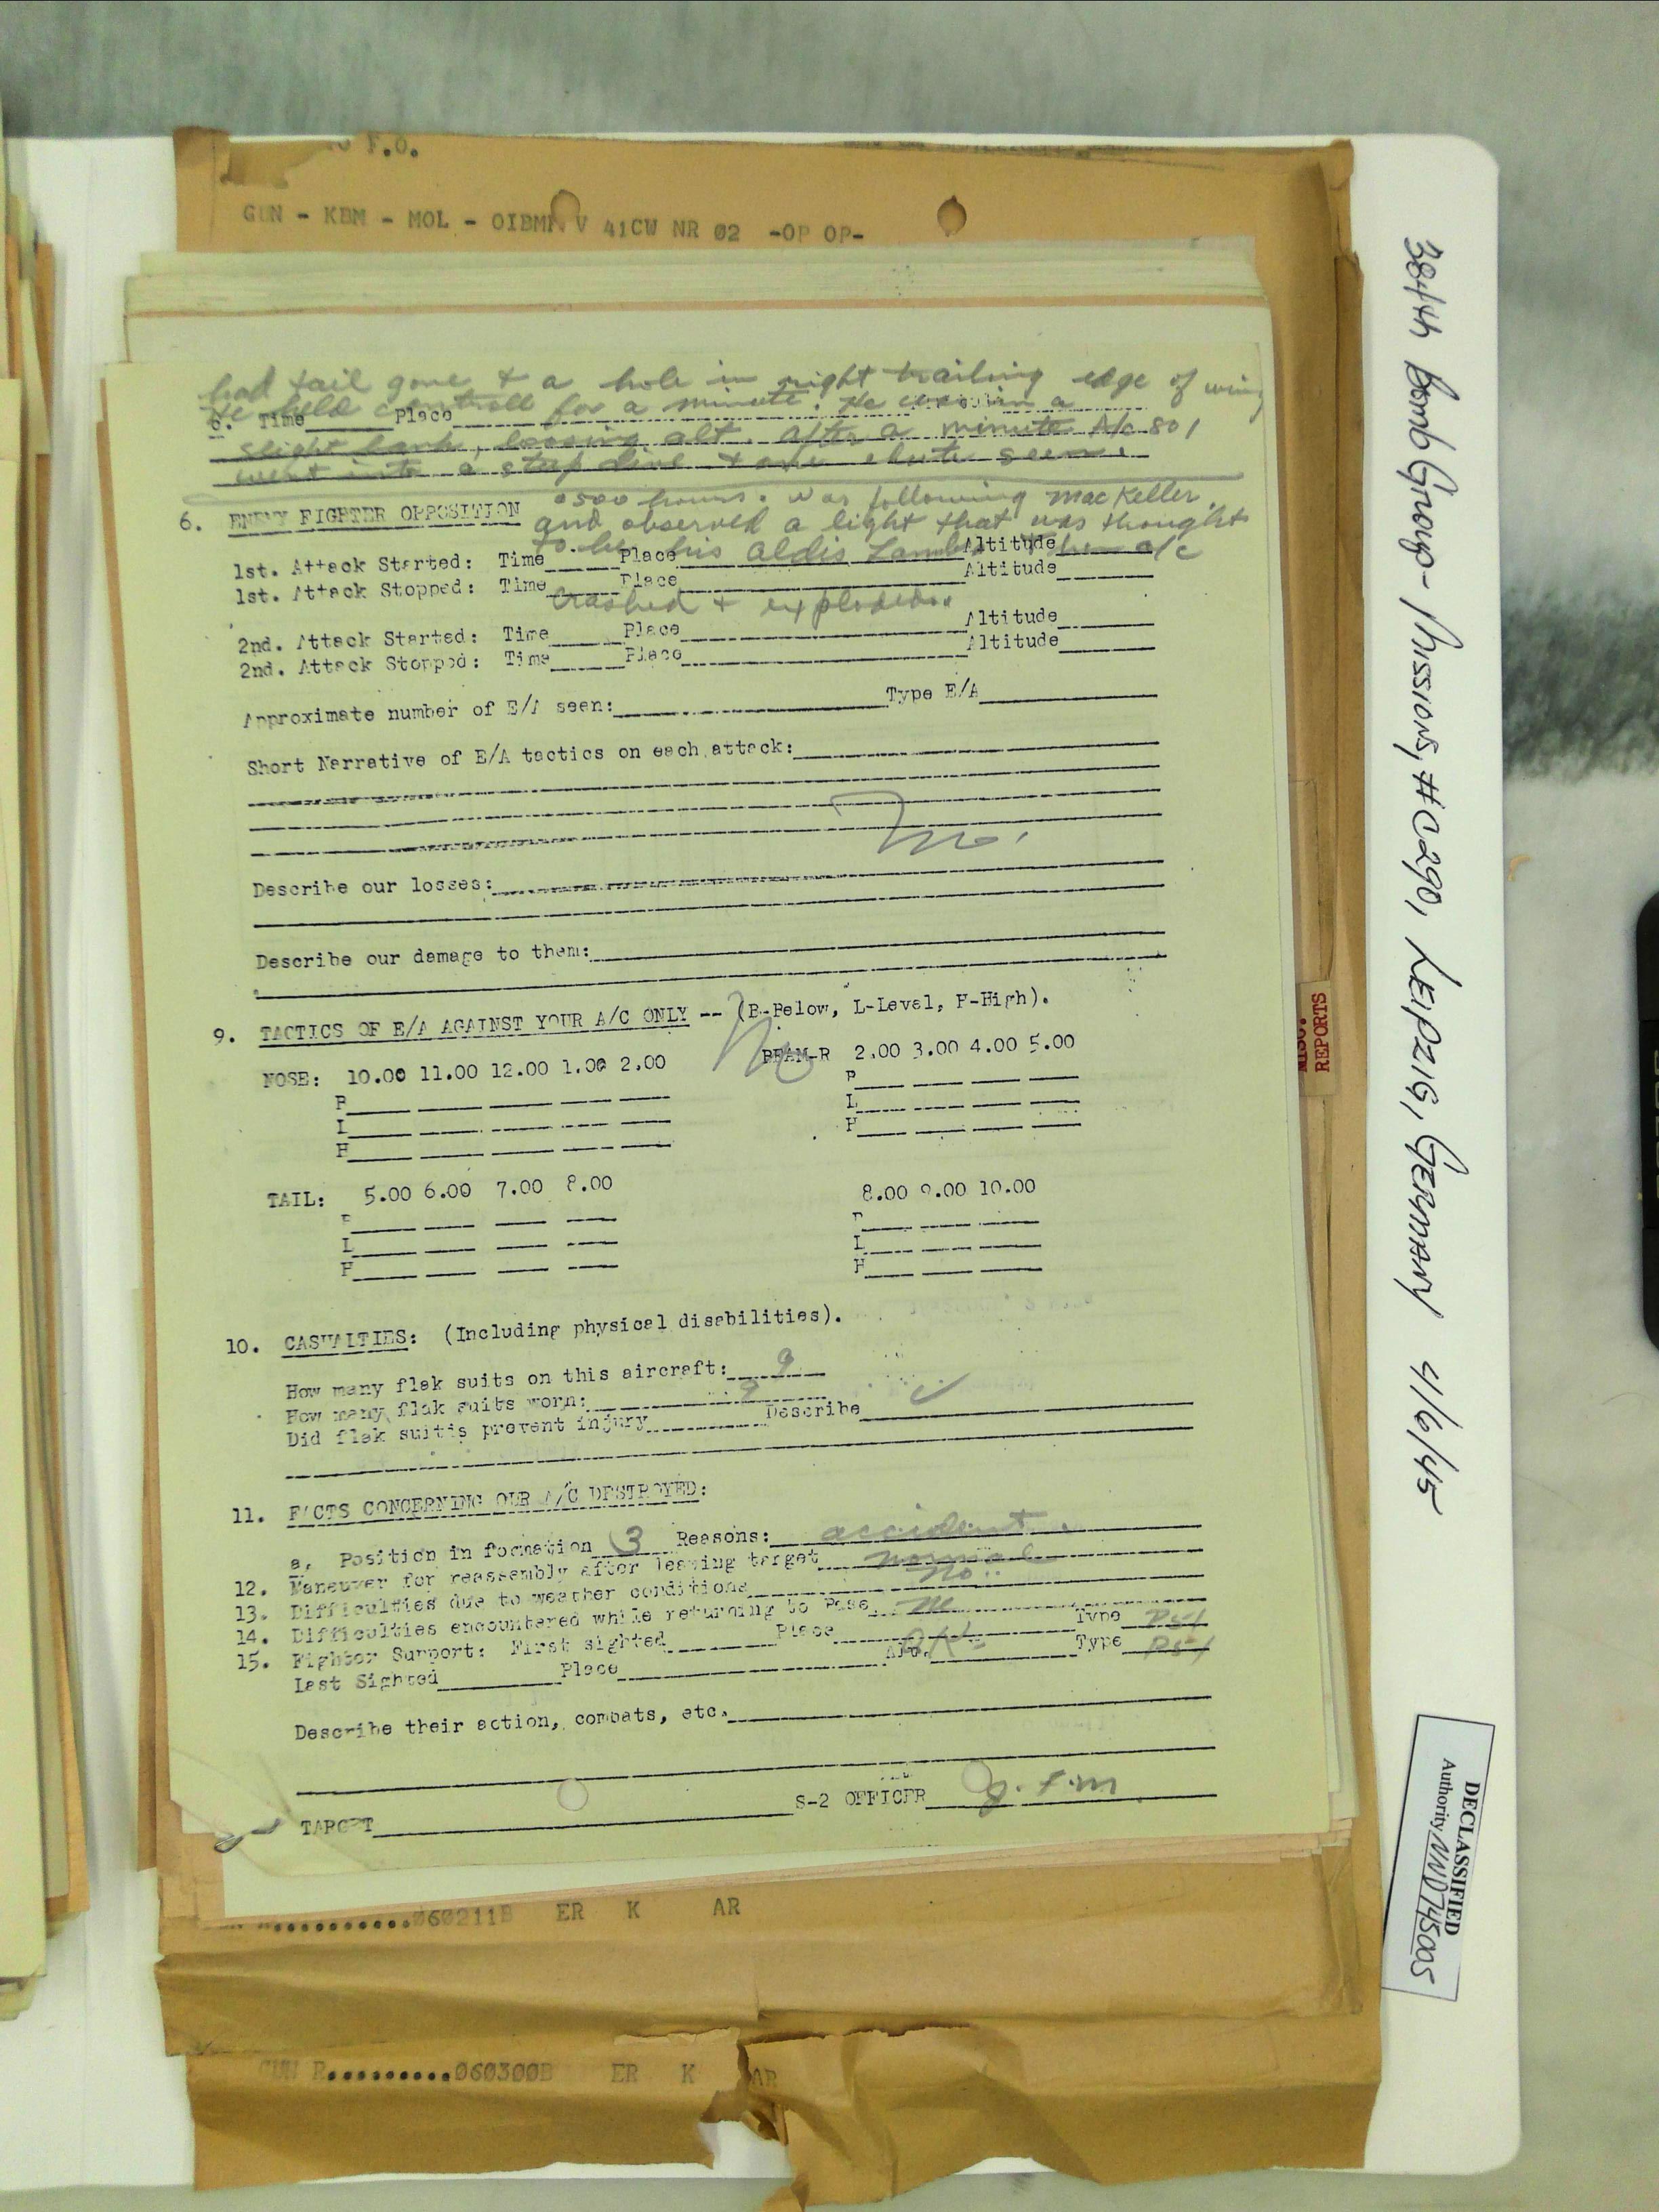 F.O.
GUN - KBM - MOL - OIBMN V 41CW NR 02 -OP OP-
had tail gone & a hole in right trailing edge of wing
He held controll for a minute. He was in a
6. Time Place
slight bank, loosing alt. After a minute A/c 801
went into a steep dive & one chute seen.
0500 hours. Was following MacKeller,
6. ENEMY FIGHTER OPPOSITION
and observed a light that was thought
to be his Aldis Lamp. Then a/c
1st. Attack Started: Time Place Altitude
1st. Attack Stopped: Time Place Altitude
crashed & exploded.
2nd. Attack Started: Time Place Altitude
2nd. Attack Stopped: Time Place Altitude
Approximate number of E/A seen: Type E/A
Short Narrative of E/A tactics on each attack:
no.
Describe our losses:
Describe our damage to them:
9. TACTICS OF E/A AGAINST YOUR A/C ONLY -- (B-Below, L-Level, H-High).
No
NOSE: 10.00 11.00 12.00 1.00 2.00 BEAM-R 2.00 3.00 4.00 5.00
B B
L L
H H
TAIL: 5.00 6.00 7.00 8.00 8.00 9.00 10.00
B B
L L
H H
10. CASUALTIES: (Including physical disabilities).
How many flak suits on this aircraft: 9
How many flak suits worn: 9
Did flak suits prevent injury Describe
11. FACTS CONCERNING OUR A/C DESTROYED:
a. Position in formation 3 Reasons: accident.
12. Maneuver for reassembly after leaving target normal
13. Difficulties due to weather conditions no
14. Difficulties encountered while returning to Base no
15. Fighter Support: First sighted Place Alt. Type P51
Last Sighted Place Type P51
Describe their action, combats, etc.
TARGET S-2 OFFICER J.F.M
060211B ER K AR
GUN R..........060300B ER K AR
MISC. REPORTS
384th Bomb Group - Missions, #0290, LEIPZIG, GERMANY 4/6/45
DECLASSIFIED
Authority NND745005